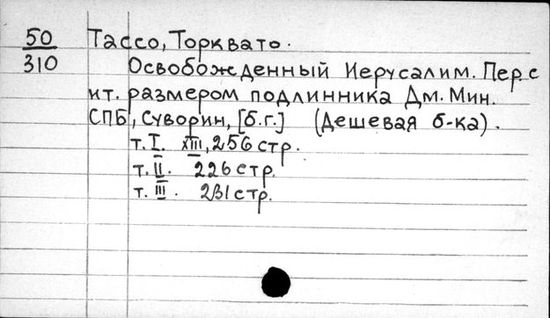 50 Тассо, Торквато.
310 Освобожденный Иерусалим. Пер. с
ит. размером подлинника Дм. Мин.
СПБ, Суворин, [б.г.] (Дешевая б-ка).
т. I. XIII, 256 стр.
т. II. 226 стр.
т. III. 231 стр.